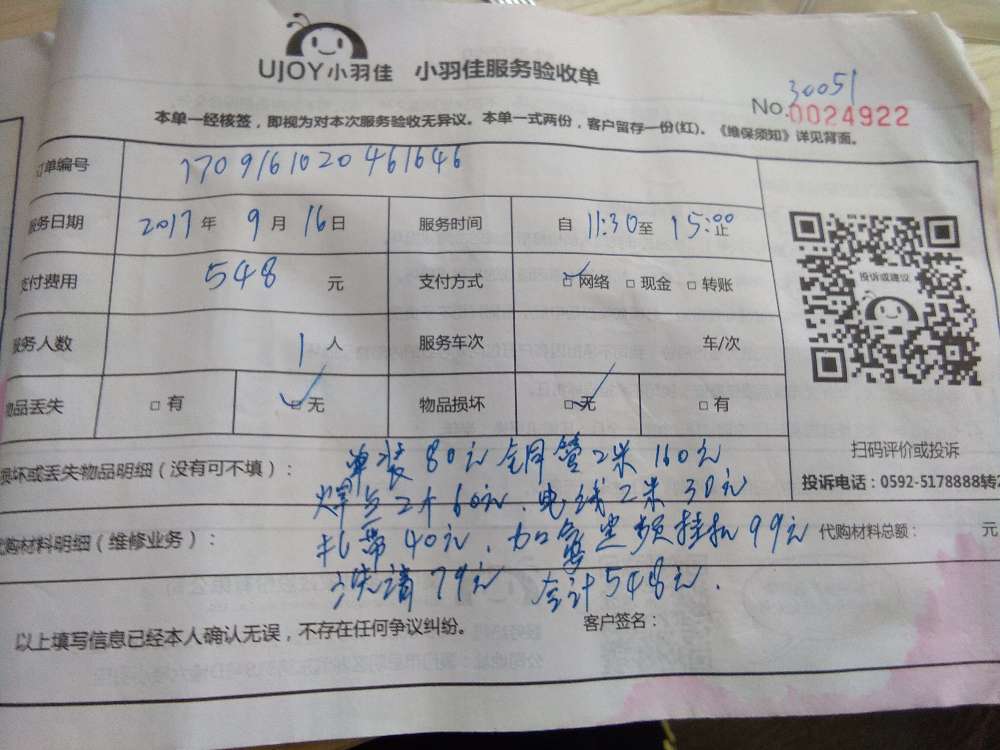 UJOY小羽佳 小羽佳服务验收单
30051
No.0024922
本单一经核签，即视为对本次服务验收无异议。本单一式两份，客户留存一份(红)。《维保须知》详见背面。
订单编号 1709161020461646
服务日期 2017年 9月 16日 服务时间 自 11:30至 15:00止
支付费用 548 元 支付方式 网络 现金 转账
投诉或建议
服务人数 1人 服务车次 车/次
物品丢失 有 无 物品损坏 无 有
扫码评价或投诉
投诉电话：0592-5178888转2
损坏或丢失物品明细（没有可不填）：
单装80元 铜管2米160元
焊点2个60元、电线2米30元
代购材料明细（维修业务）： 扎带40元、加 99元 代购材料总额： 元
清 79元 合计548元.
以上填写信息已经本人确认无误，不存在任何争议纠纷。 客户签名：